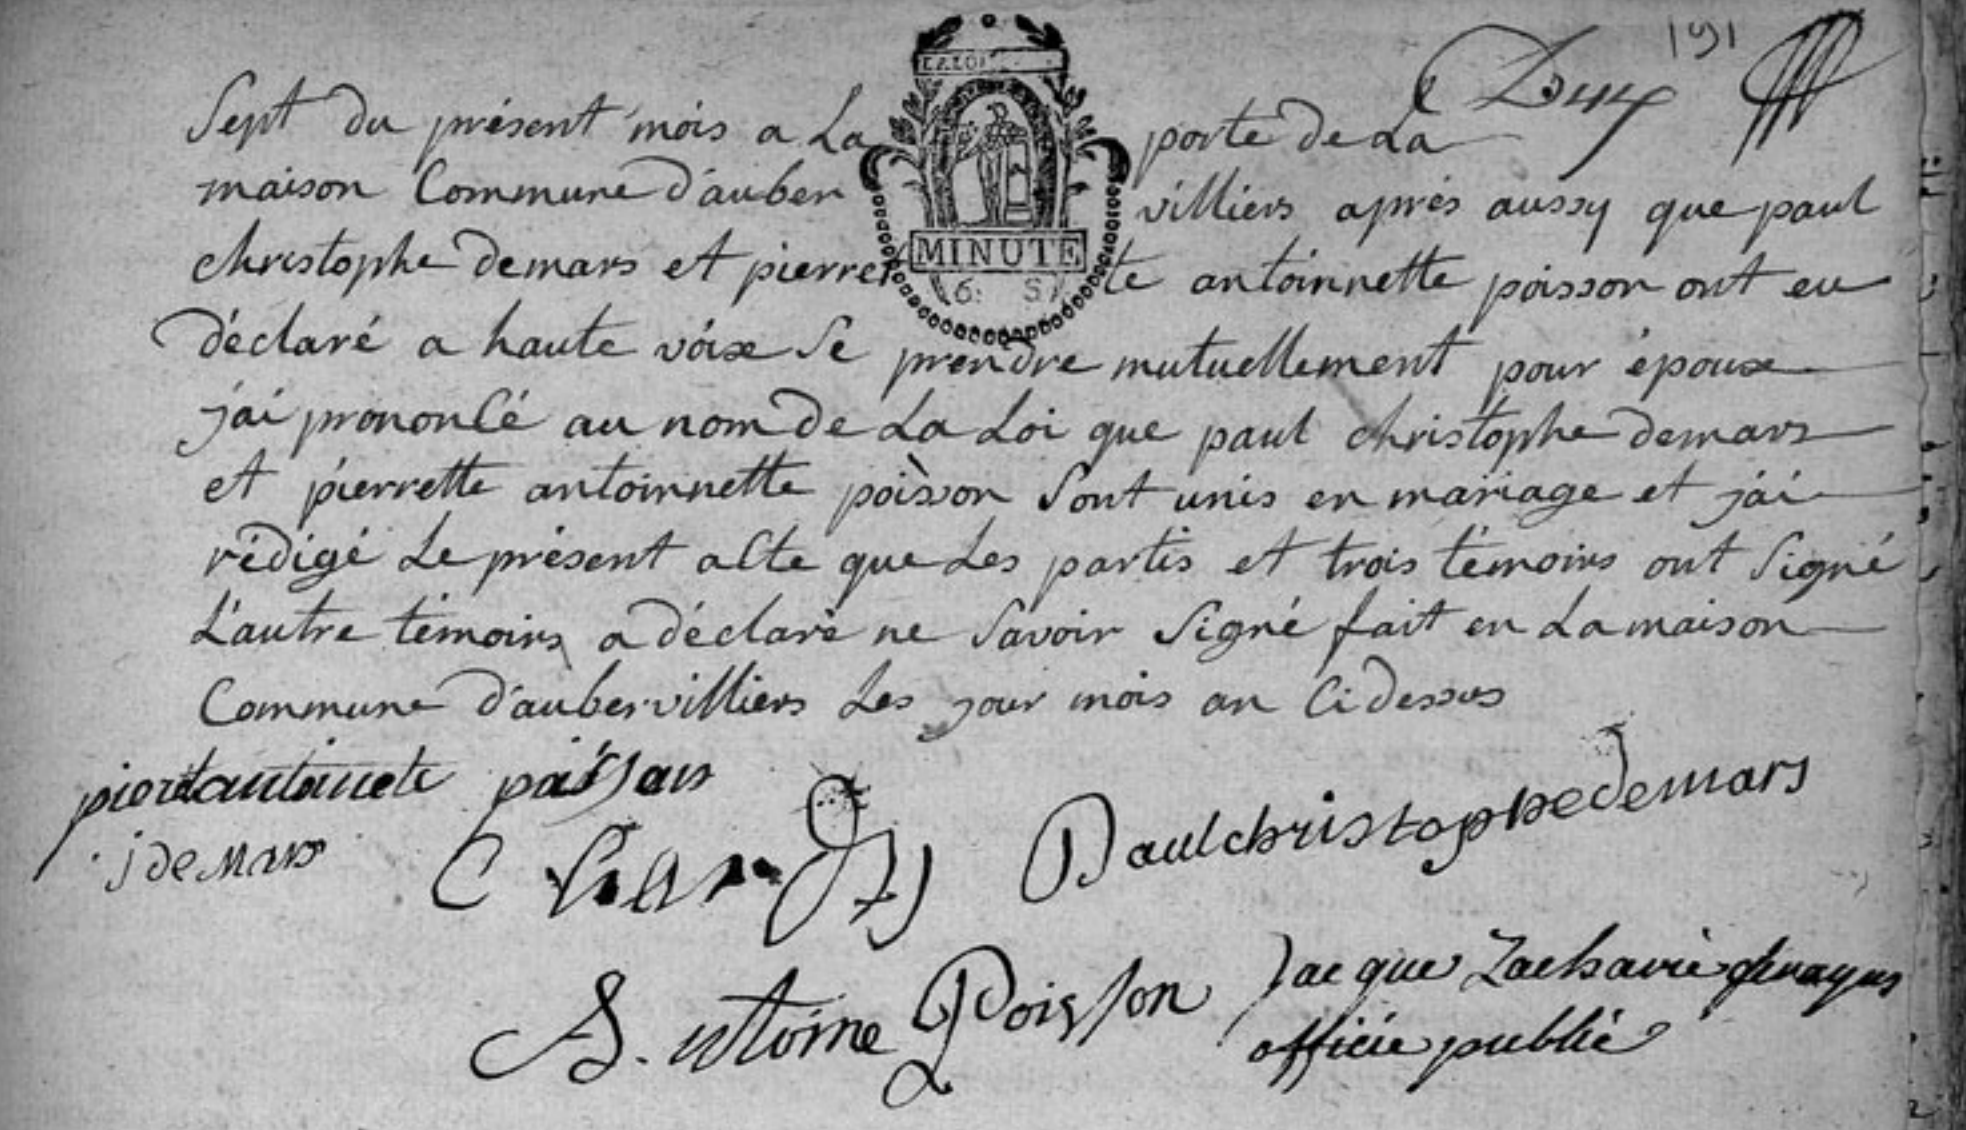 191
LA LOI
MINUTE
6: S
Sept du présent mois a La porte de La
maison Commune d'auber villiers aprés aussy que paul
christophe demars et pierret te antoinnette poisson ont eu
déclaré a haute voix Se prendre mutuellement pour époux
j'ai prononcé au nom de La Loi que paul christophe demars
et pierrette antoinnette poisson Sont unis en mariage et j'ai
rédigé Le présent acte que Les partis et trois témoins ont Signé
L'autre témoins a déclaré ne Savoir Signé fait en La maison
Commune d'aubervilliers Les jour mois an Ci dessus
j demars
Paul christophe demars
Antoine Poisson
Jacque Zacharie
officie publie